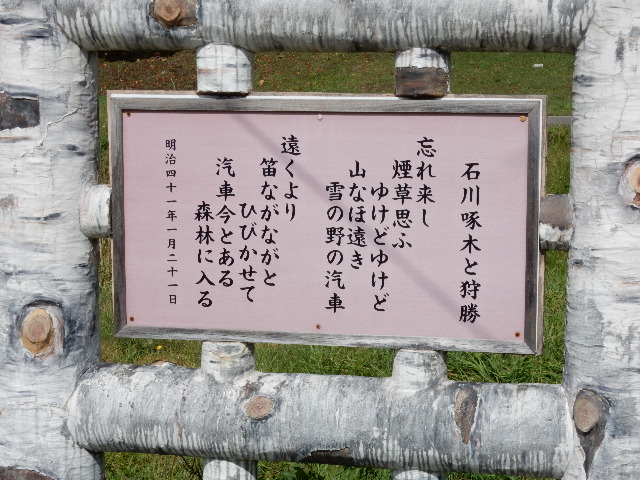 石川啄木と狩勝
忘れ来し
煙草思ふ
ゆけどゆけど
山なほ遠き
雪の野の汽車
遠くより
笛ながながと
ひびかせて
汽車今とある
森林に入る
明治四十一年一月二十一日